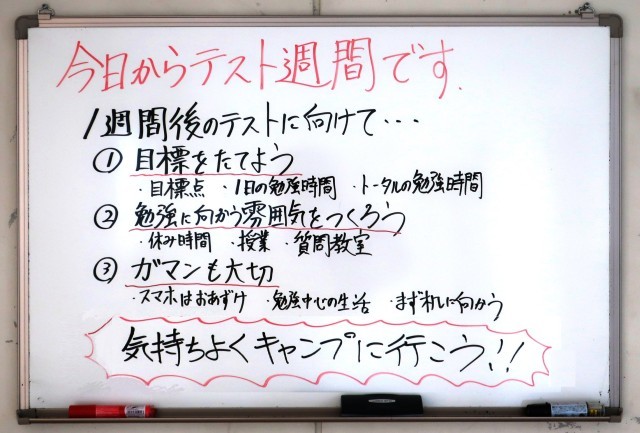 今日からテスト週間です.
1週間後のテストに向けて・・・
① 目標をたてよう
・目標点 ・1日の勉強時間 ・トータルの勉強時間
② 勉強に向かう雰囲気をつくろう
・休み時間 ・授業 ・質問教室
③ ガマンも大切
・スマホはおあずけ ・勉強中心の生活 ・まず机に向かう
気持ちよくキャンプに行こう!!